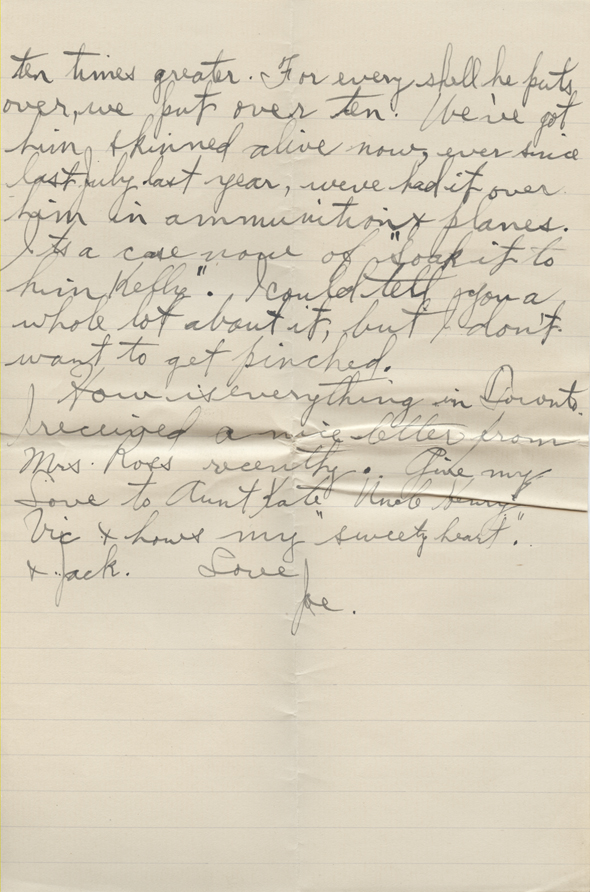 ten times greater. For every shell he puts
over, we put over ten. We've got
him skinned alive now, ever since
last July last year, weve had it over
him in ammunition & planes.
Its a case now of "Soak it to
him Kelly". I could tell you a
whole lot about it, but I don't
want to get pinched.
How is everything in Toronto.
I received a nice letter from
Mrs. Ross recently. Give my
Love to Aunt Kate Uncle
Vic & hows my "sweetheart".
& Jack. Love
Joe.